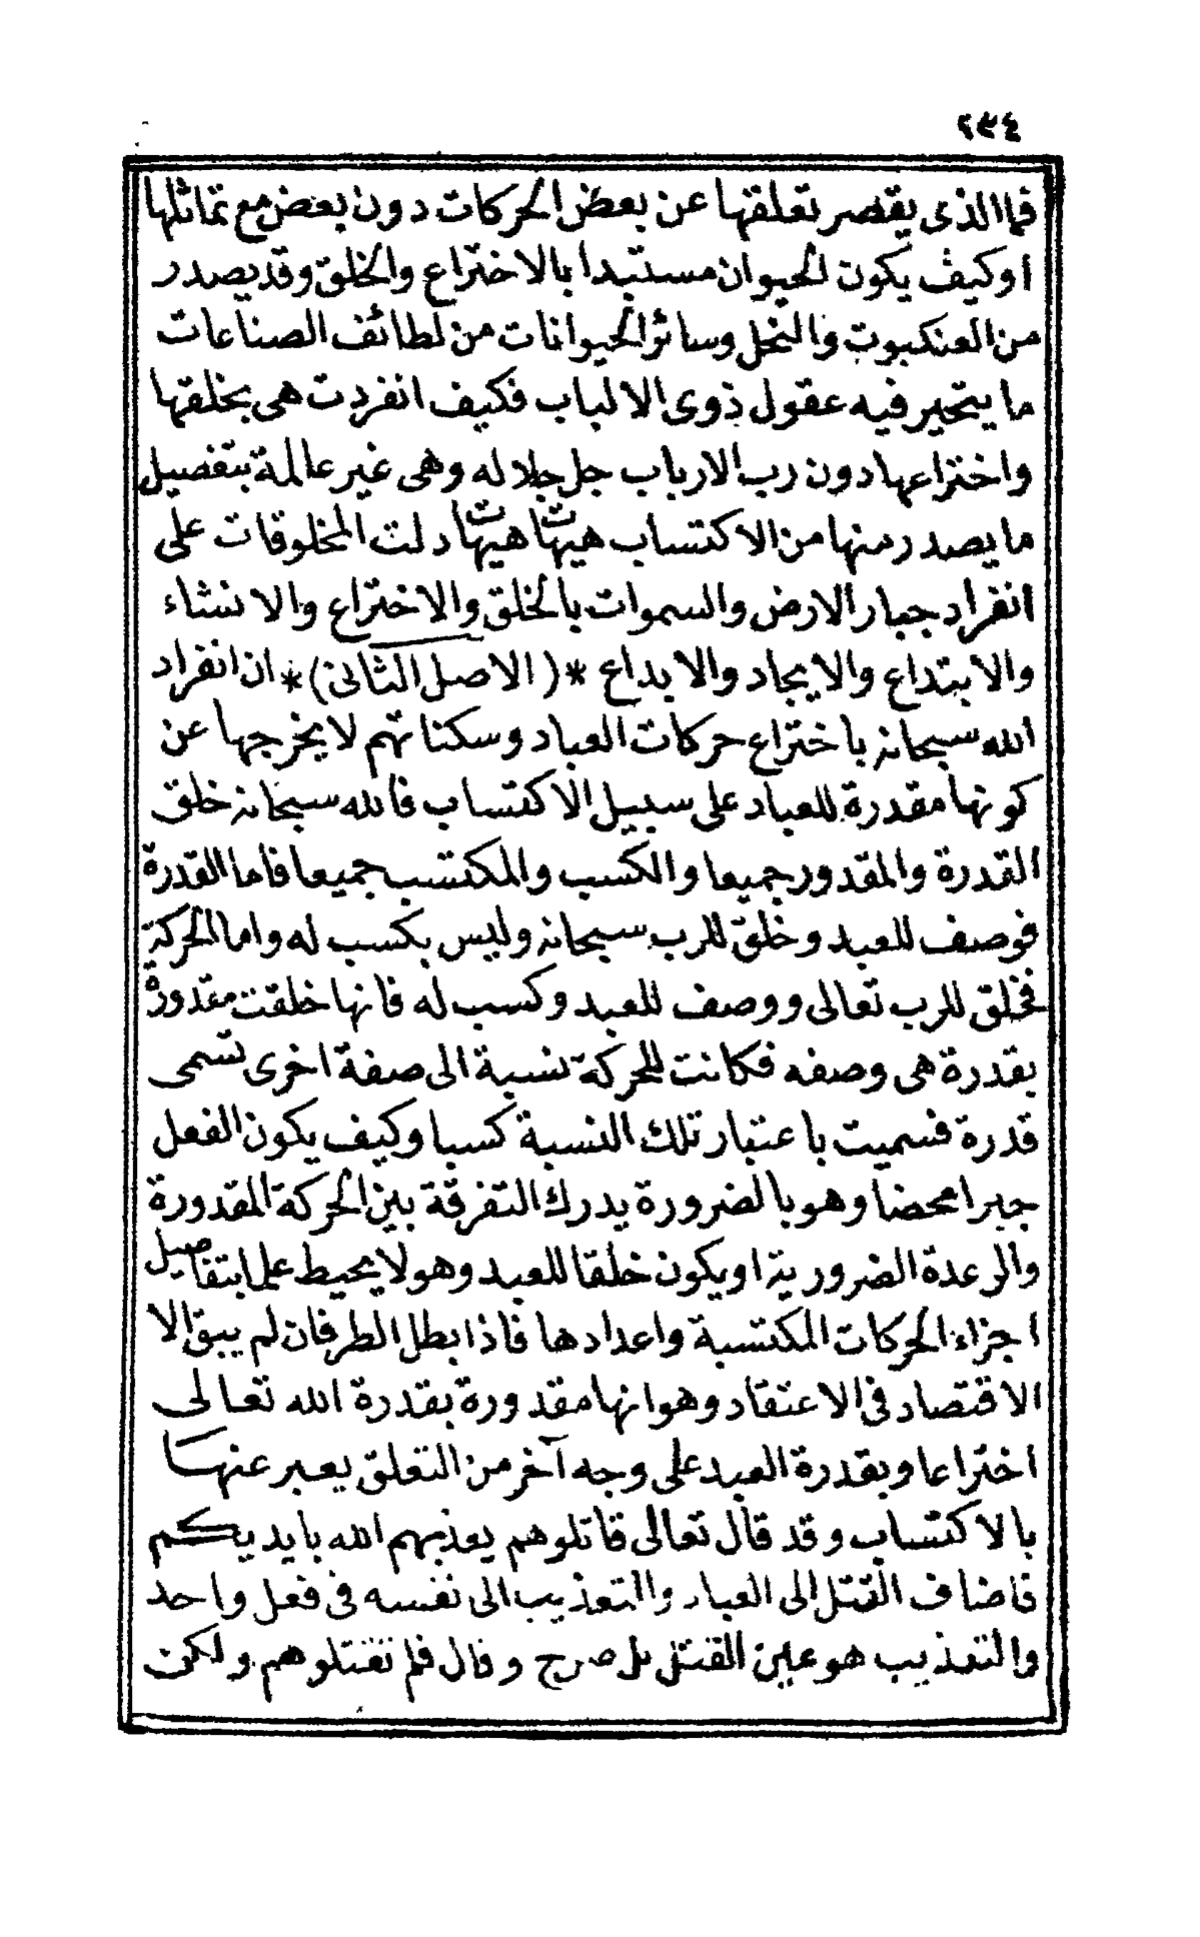 ٢٣٤
فما الذى يقصر تعلقها عن بعض الحركات دون بعض مع تماثلها
او كيف يكون الحيوان مستبدا بالاختراع والخلق وقد يصدر
من العنكبوت والنحل وسائر الحيوانات من لطائف الصناعات
ما يتحير فيه عقول ذوى الالباب فكيف انفردت هى بخلقها
واختراعها دون رب الارباب جل جلاله وهى غير عالمة بتفصيل
ما يصدر منها من الاكتساب هيهات هيهات دلت المخلوقات على
انفراد جبار الارض والسموات بالخلق والاختراع والانشاء
والابتداع والايجاد والابداع *(الاصل الثانى)* ان انفراد
الله سبحانه باختراع حركات العباد وسكناتهم لا يخرجها عن
كونها مقدرة للعباد على سبيل الاكتساب فالله سبحانه خلق
القدرة والمقدور جميعا والكسب والمكتسب جميعا فاما القدرة
فوصف للعبد وخلق للرب سبحانه وليس بكسب له واما الحركة
فخلق للرب تعالى ووصف للعبد وكسب له فانها خلقت مقدورة
بقدرة هى وصفه فكانت للحركة نسبة الى صفة اخرى تسمى
قدرة فسميت باعتبار تلك النسبة كسبا وكيف يكون الفعل
جبرا محضا وهو بالضرورة يدرك التفرقة بين الحركة المقدورة
والرعدة الضرورية او يكون خلقا للعبد وهو لا يحيط علما بتفاصيل
اجزاء الحركات المكتسبة واعدادها فاذا بطل الطرفان لم يبق الا
الاقتصاد فى الاعتقاد وهو انها مقدورة بقدرة الله تعالى
اختراعا وبقدرة العبد على وجه آخر من التعلق يعبر عنها
بالاكتساب وقد قال تعالى قاتلوهم يعذبهم الله بايديكم
فاضاف القتل الى العباد والتعذيب الى نفسه فى فعل واحد
والتعذيب هو عين القتل بل صرح وقال فلم تقتلوهم ولكن